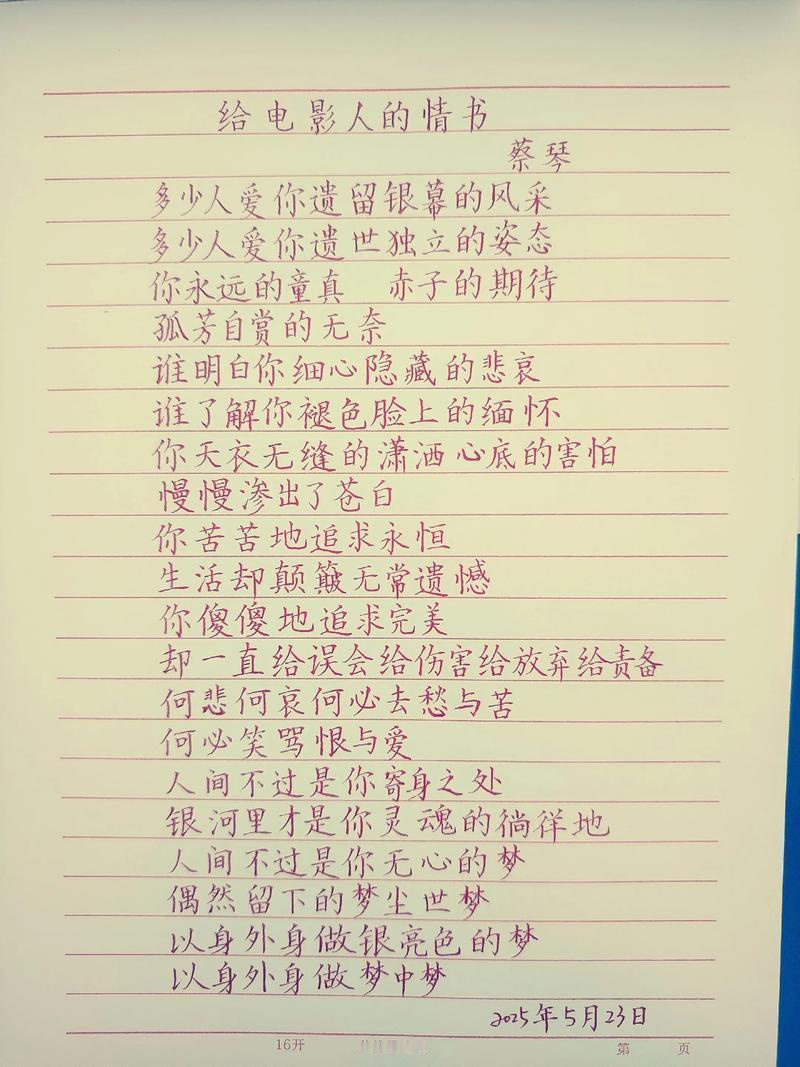 给电影人的情书
蔡琴
多少人爱你遗留银幕的风采
多少人爱你遗世独立的姿态
你永远的童真 赤子的期待
孤芳自赏的无奈
谁明白你细心隐藏的悲哀
谁了解你褪色脸上的缅怀
你天衣无缝的潇洒心底的害怕
慢慢渗出了苍白
你苦苦地追求永恒
生活却颠簸无常遗憾
你傻傻地追求完美
却一直给误会给伤害给放弃给责备
何悲何哀何必去愁与苦
何必笑骂恨与爱
人间不过是你寄身之处
银河里才是你灵魂的徜徉地
人间不过是你无心的梦
偶然留下的梦尘世梦
以身外身做银亮色的梦
以身外身做梦中梦
2025年5月23日
16开
第 页